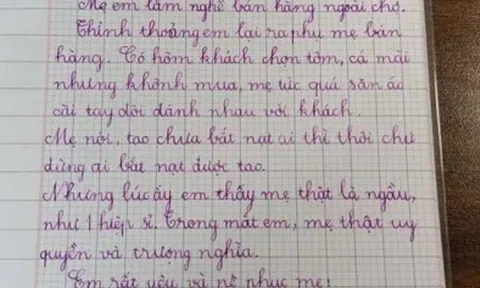 Mẹ em làm nghề bán hàng ngoài chợ.
Thỉnh thoảng em lại ra phụ mẹ bán
hàng. Có hôm khách chọn tôm, cá mãi
nhưng không mua, mẹ ức quá săn áo
cài tay đòi đánh nhau với khách.
Mẹ nói, tao chưa bắt nạt ai thì thôi chứ
đừng ai bắt nạt được tao.
Nhưng lúc ấy em thấy mẹ thật là ngầu,
như 1 hiệp sĩ. Trong mắt em, mẹ thật uy
quyền và trượng nghĩa.
Em rất yêu và nể phục mẹ!